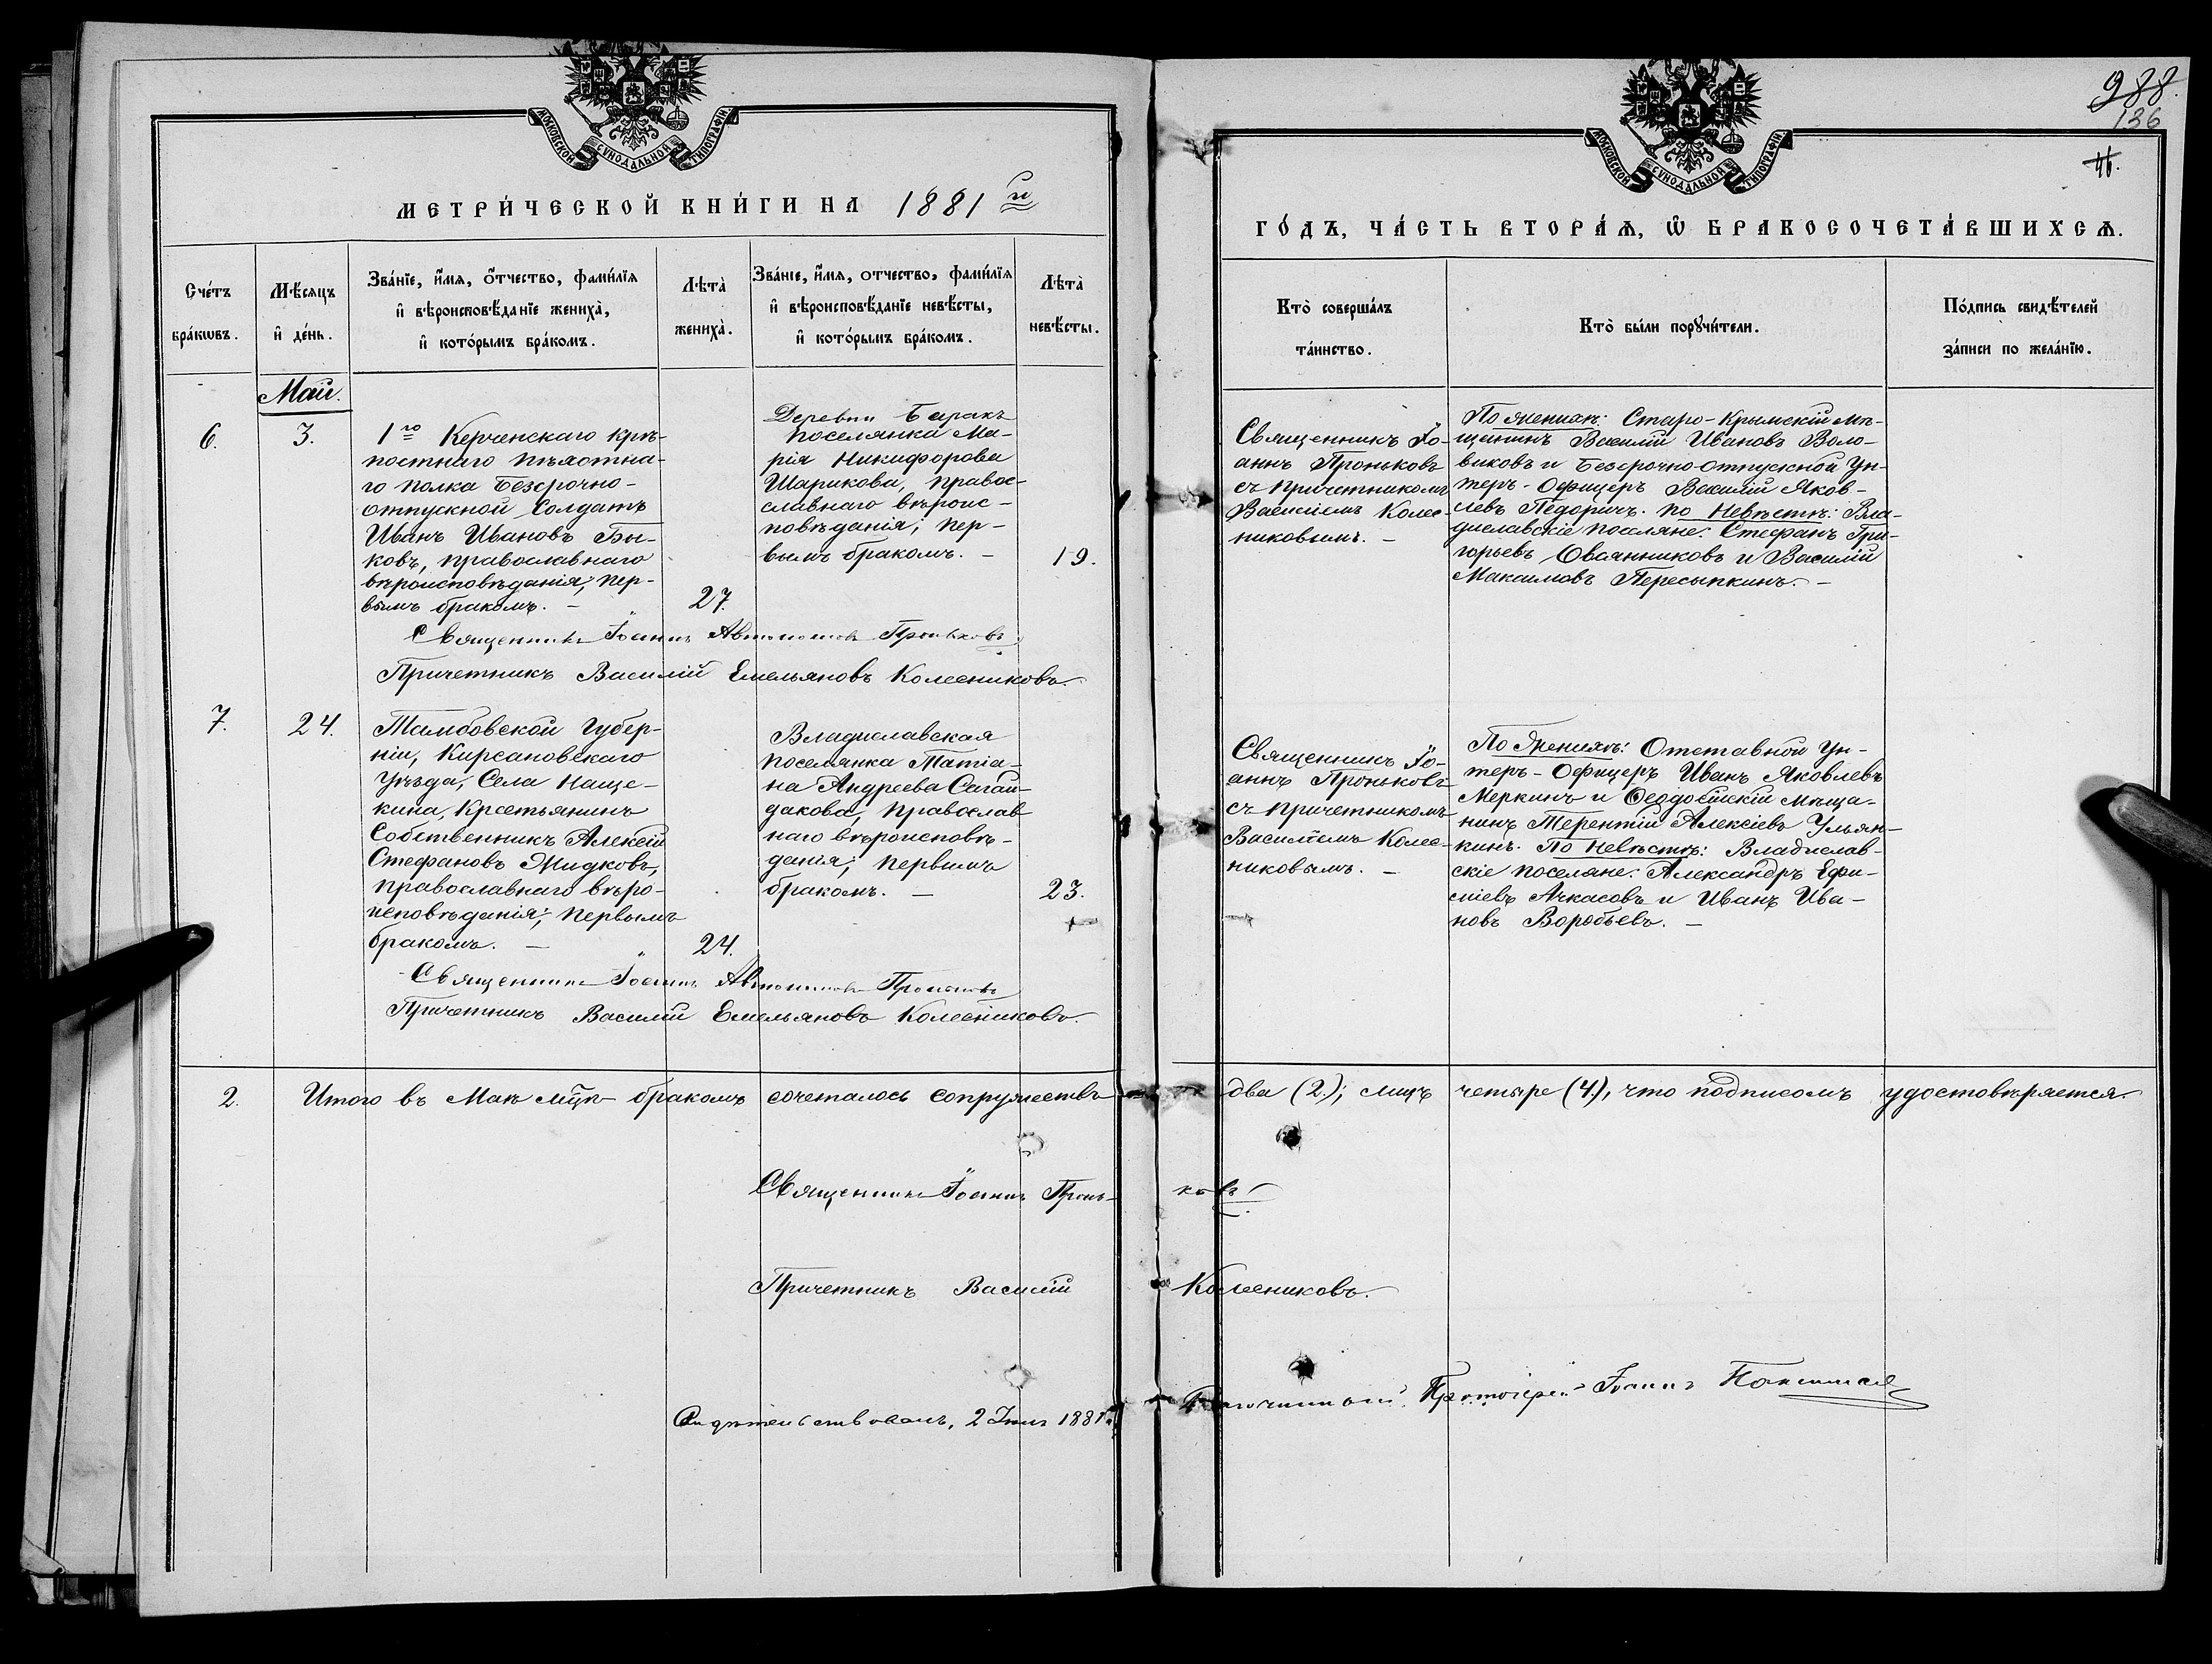 МОСКОВСКОЙ СУНОДАЛЬНОЙ ТИПОГРАФІИ
МЕТРИ́ЧЕСКОЙ КНИ́ГИ НА 1881 й
Сче́тъ бра́кѡвъ.
Мѣ́сяцъ и҆ де́нь.
Зва́нїе, и҆́мя, о҆́тчество, фами́лїя
и҆ вѣроисповѣ́данїе жениха̀,
и҆ кото́рымъ бра́комъ.
Лѣта̀
жениха̀.
Зва́нїе, и҆́мя, отчество, фами́лїя
и҆ вѣроисповѣ́данїе невѣ́сты,
и҆ кото́рымъ бра́комъ.
Лѣта̀
невѣ́сты.
Май.
6.
3.
1го Керченскаго крѣ-
постнаго пѣхотна-
го полка безсрочно-
отпускной Солдатъ
Иванъ Ивановъ Бы-
ковъ, православнаго
вѣроисповѣданія; пер-
вымъ бракомъ. –
27.
Деревни Баракъ
поселянка Ма-
рія Никифорова
Шарикова, правос-
славнаго вѣроис-
повѣданія; пер-
вымъ бракомъ. –
19.
Священникъ Іоаннъ Автономовъ Проньковъ
Причетникъ Василій Емельяновъ Колесниковъ.
7.
24.
Тамбовской Губер-
ніи, Кирсановскаго
Уѣзда, Села Наще-
кина, Крестьянинъ
Собственникъ Алексій
Стефановъ Жидковъ,
православнаго вѣро-
исповѣданія; первымъ
бракомъ. –
24.
Владиславская
поселянка Татіа-
на Андреева Сагай-
дакова, православ-
наго вѣроисповѣ-
данія; первымъ
бракомъ. –
23.
Священникъ Іоаннъ Автономовъ Проньковъ
Причетникъ Василій Емельяновъ Колесниковъ.
2. Итого въ Маѣ мцѣ бракомъ сочеталось сопружествъ
Священникъ Іоаннъ Пронь-
Причетникъ Василій
Свидѣтельствовалъ, 2 1881
988.
136
МОСКОВСКОЙ СУНОДАЛЬНОЙ ТИПОГРАФІИ
ГО́ДЪ, ЧА́СТЬ ВТОРА́Ѧ, Ѡ҆ БРАКОСОЧЕТА́ВШИХСѦ.
Кто̀ соверша́лъ
та́инство.
Кто̀ бы́ли порꙋчи́тели.
По́дпись свидѣ́телей
за́писи по жела́нїю.
Священникъ Іо-
аннъ Проньковъ
съ причетникомъ
Василіемъ Колес-
никовымъ. –
По женихѣ: Старо-Крымскій мѣ-
щанинъ Василій Ивановъ Воло-
виковъ и Безсрочно-отпускной Ун-
теръ-Офицеръ Василій Яков-
левъ Педоричъ. По Невѣстѣ: Вла-
диславскіе поселяне: Стефанъ Гри-
горьевъ Овсянниковъ и Василій
Максимовъ Пересыпкинъ. –
Священникъ Іо-
аннъ Проньковъ
съ причетникомъ
Василіемъ Колес-
никовымъ. –
По Женихѣ: Отставной Ун-
теръ-Офицеръ Иванъ Яковлевъ
Меркинъ и Ѳеодосійскій мѣща-
нинъ Терентій Алексіевъ Ульян-
кинъ. По Невѣстѣ: Владислав-
скіе поселяне: Александръ Ефи-
міевъ Ачкасовъ и Иванъ Ива-
новъ Воробьевъ. –
два (2.); лицъ четыре (4.), что подписомъ удостовѣряется.
ковъ
Колесниковъ.
Благочинный, Протоіерей Іоаннъ